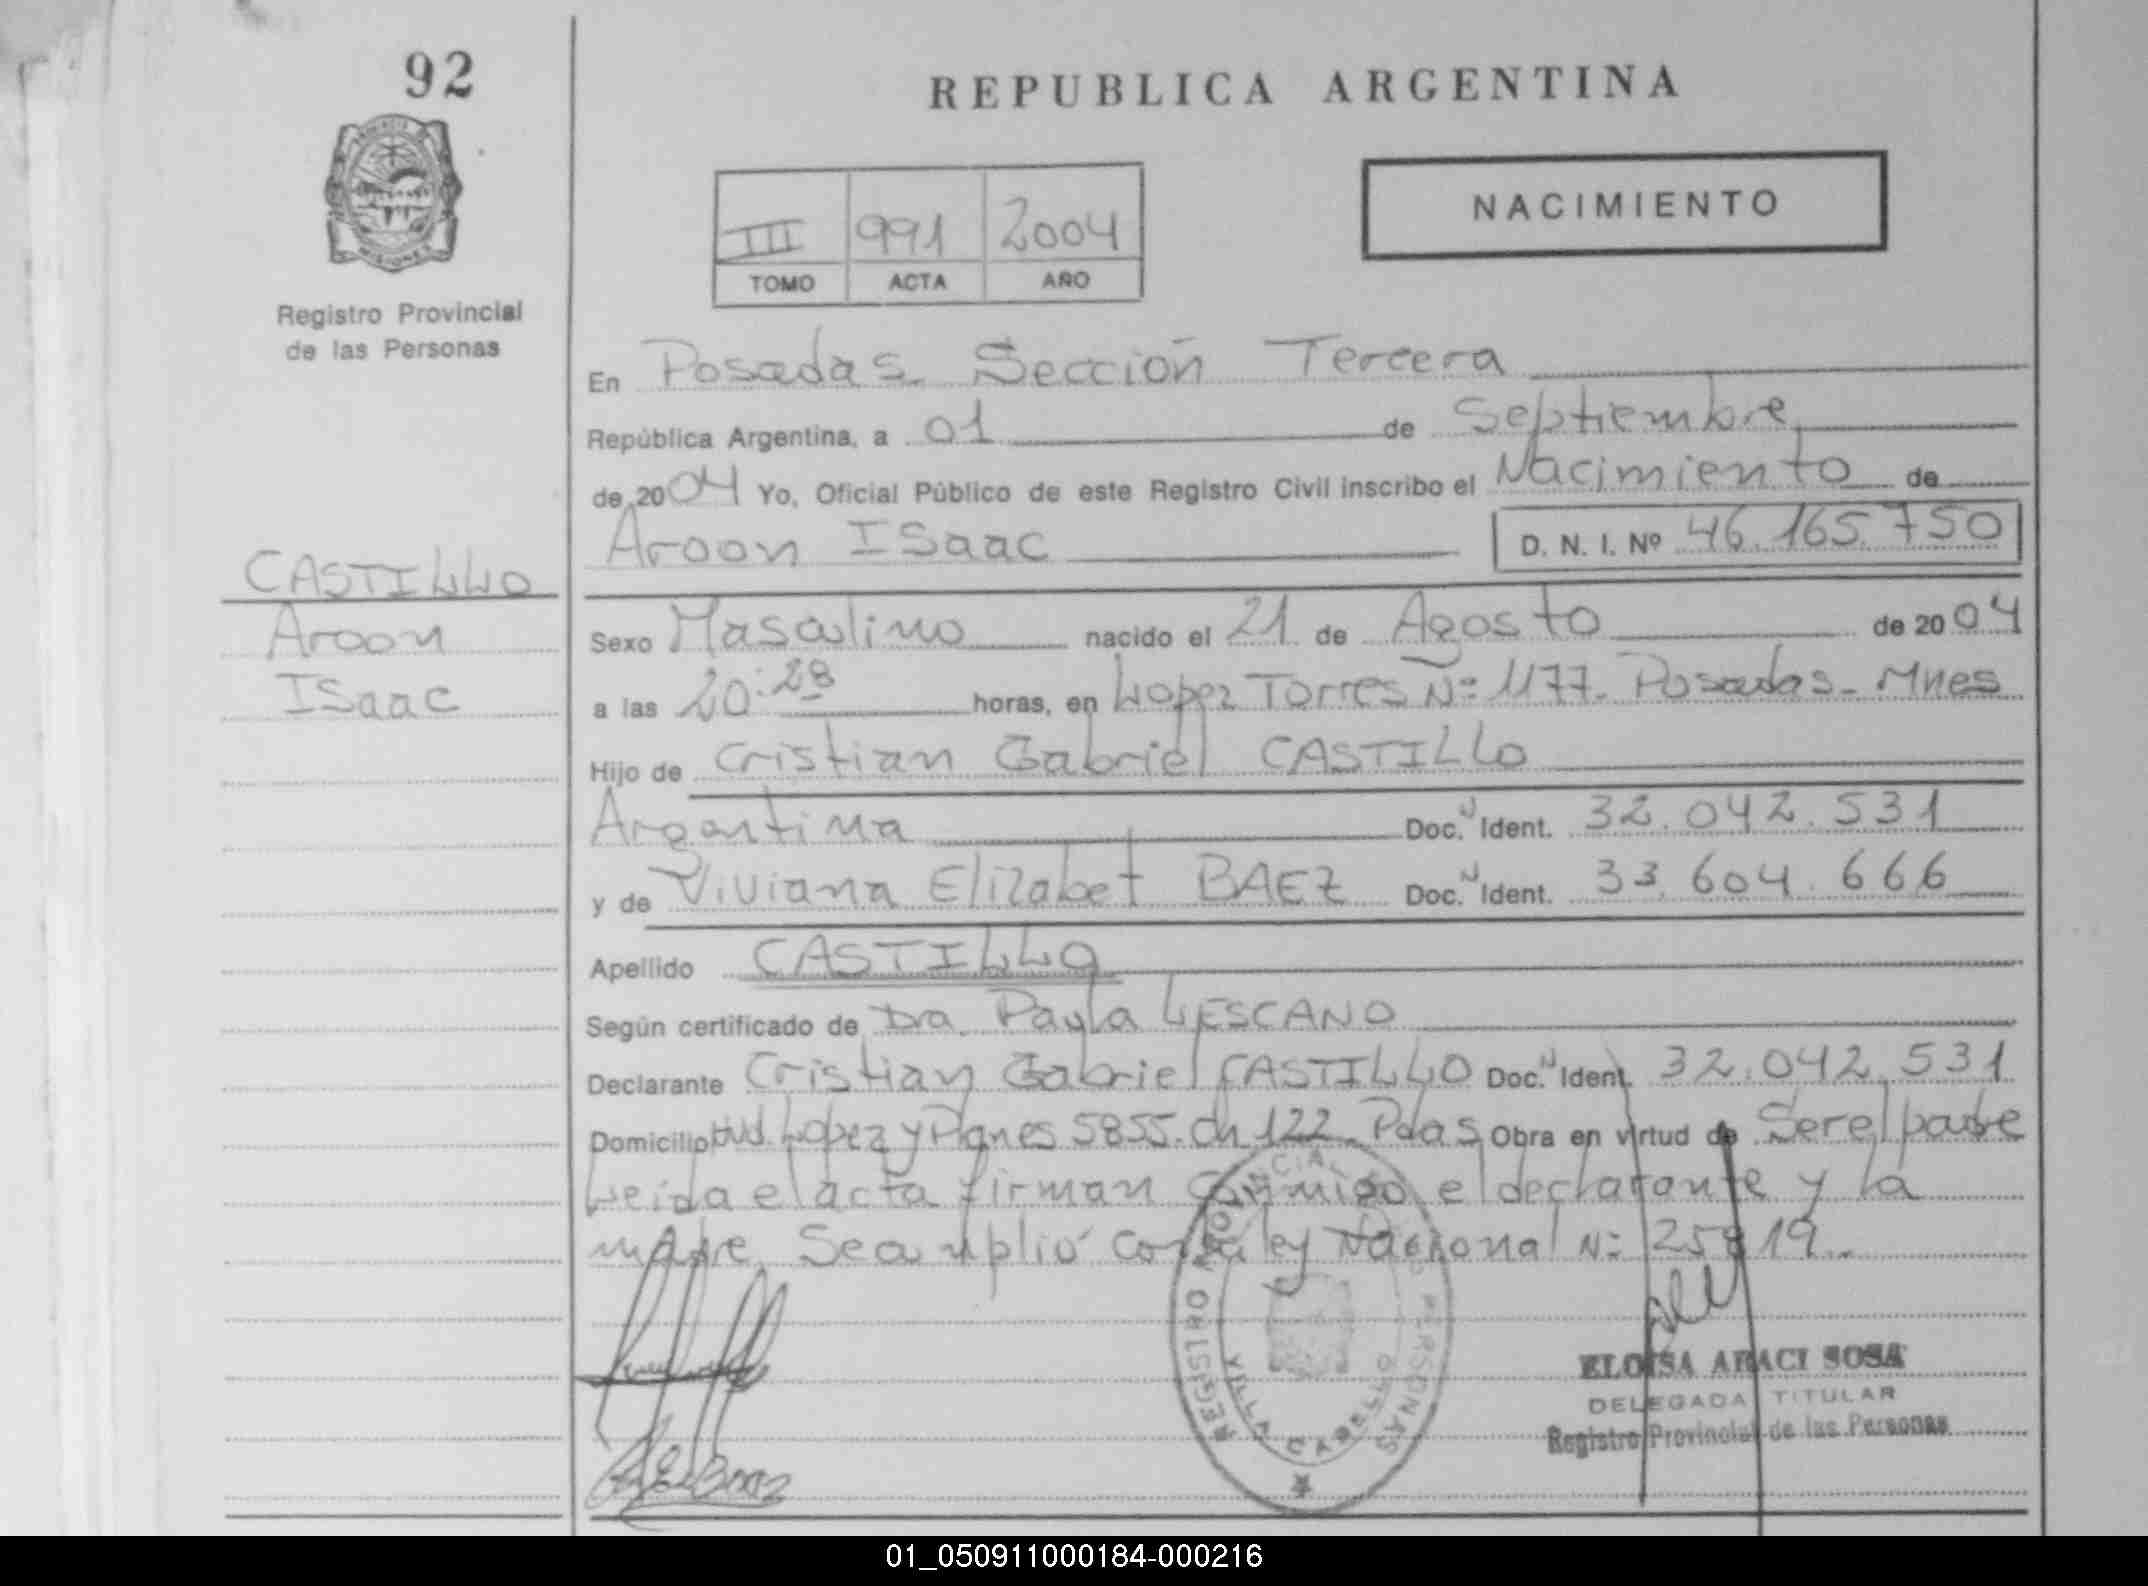 92
REPUBLICA ARGENTINA
NACIMIENTO
III 991 2004
TOMO ACTA AÑO
PROVINCIA DE
MISIONES
Registro Provincial
de las Personas
En Posadas. Sección Tercera
República Argentina, a 01 de Septiembre
de 2004 Yo, Oficial Público de este Registro Civil inscribo el Nacimiento de
Aroon ISaac D. N. I. Nº 46.165.750
CASTILLO
Aroon
ISaac
Sexo Masculino nacido el 21 de Agosto de 2004
a las 20:28 horas, en Lopez Torres Nº 1177. Posadas - Mnes
Hijo de Cristian Gabriel CASTILLO
Argentina Doc. Ident. 32.042.531
y de Viviana Elizabet BAEZ Doc. Ident. 33.604.666
Apellido CASTILLO
Según certificado de Dra. Paula LESCANO
Declarante Cristian Gabriel CASTILLO Doc. Ident. 32.042.531
Domicilio Lopez y Planes 5855. Ch 122. Pdas Obra en virtud de Ser el padre
Leida el acta firman conmigo el declarante y la
madre. Se cumplió con la ley Nacional Nº 25819.
REGISTRO PROVINCIAL PERSONAS
VILLA CABELLO
ELOISA ARACI SOSA
DELEGADA TITULAR
Registro Provincial de las Personas
01_050911000184-000216